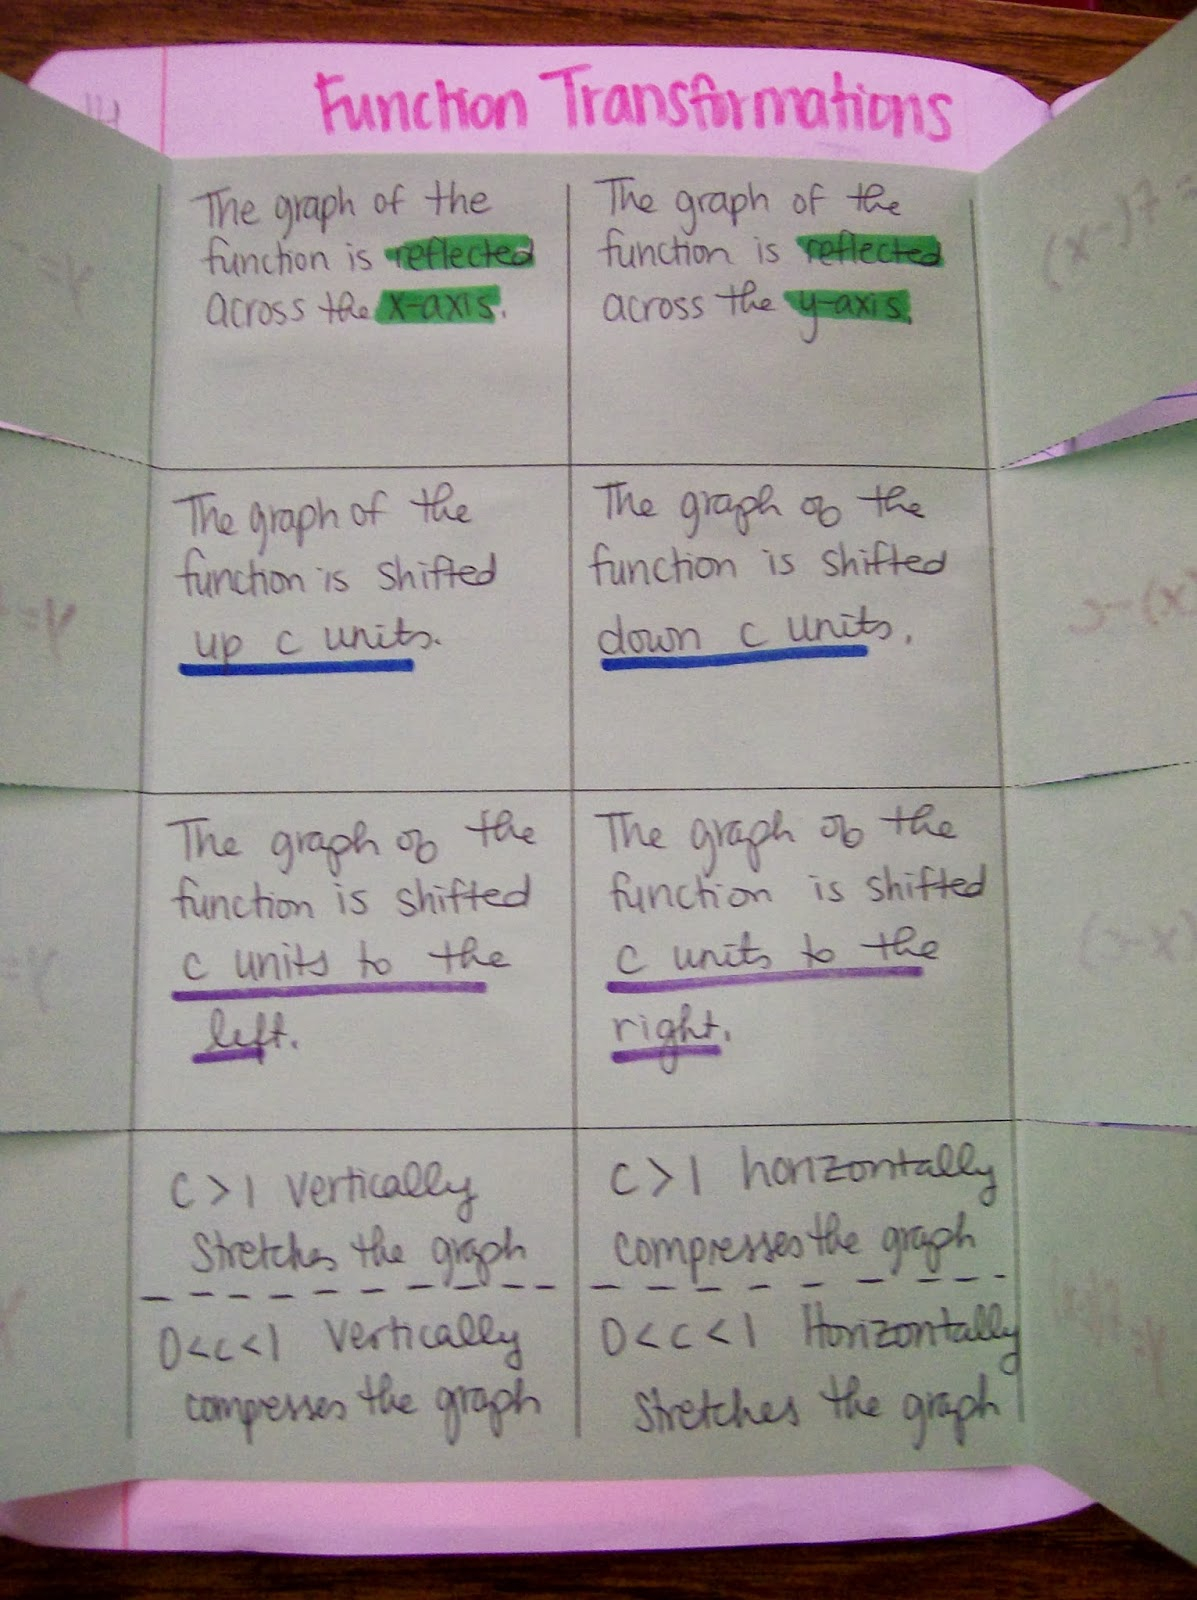 Function Transformations
The graph of the
function is reflected
across the x-axis.
The graph of the
function is reflected
across the y-axis.
The graph of the
function is shifted
up c units.
The graph of the
function is shifted
down c units.
The graph of the
function is shifted
c units to the
left.
The graph of the
function is shifted
c units to the
right.
c > 1 vertically
stretches the graph
0 < c < 1 vertically
compresses the graph
c > 1 horizontally
compresses the graph
0 < c < 1 Horizontally
stretches the graph
y=
= f(-x)
y=
(x)-c
y=
(x-c)
y=